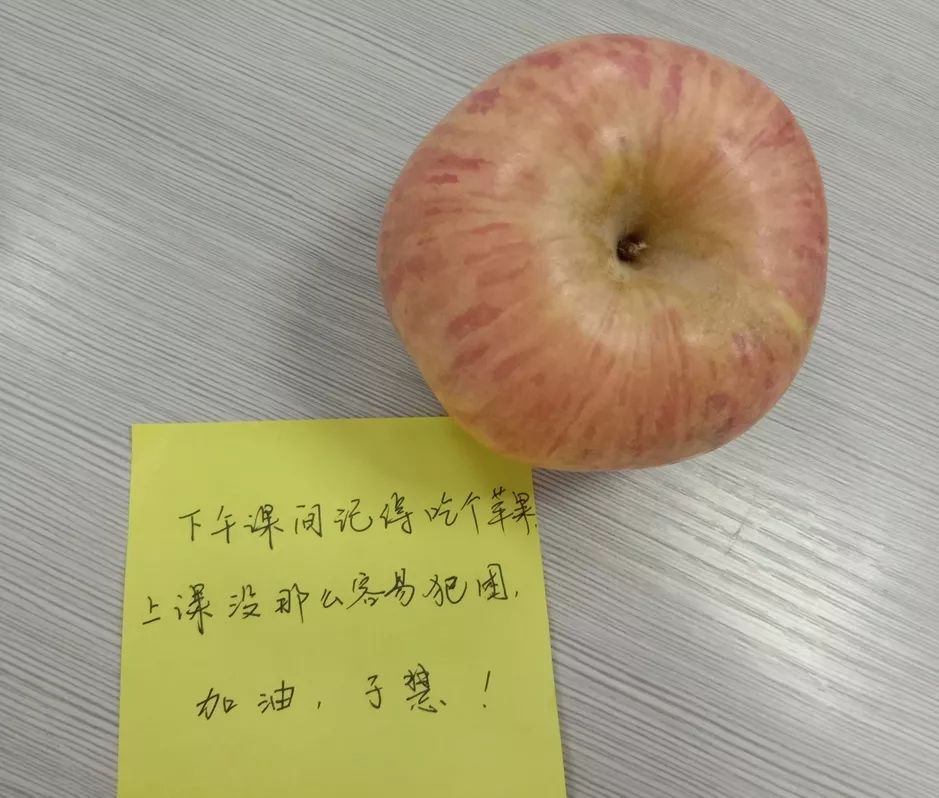 下午课间记得吃个苹果,
上课没那么容易犯困.
加油,子想!